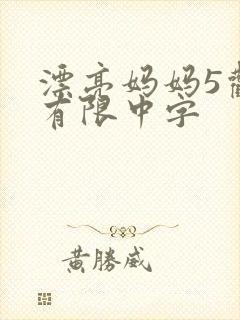 漂亮妈妈5
有限中字
黄勝威